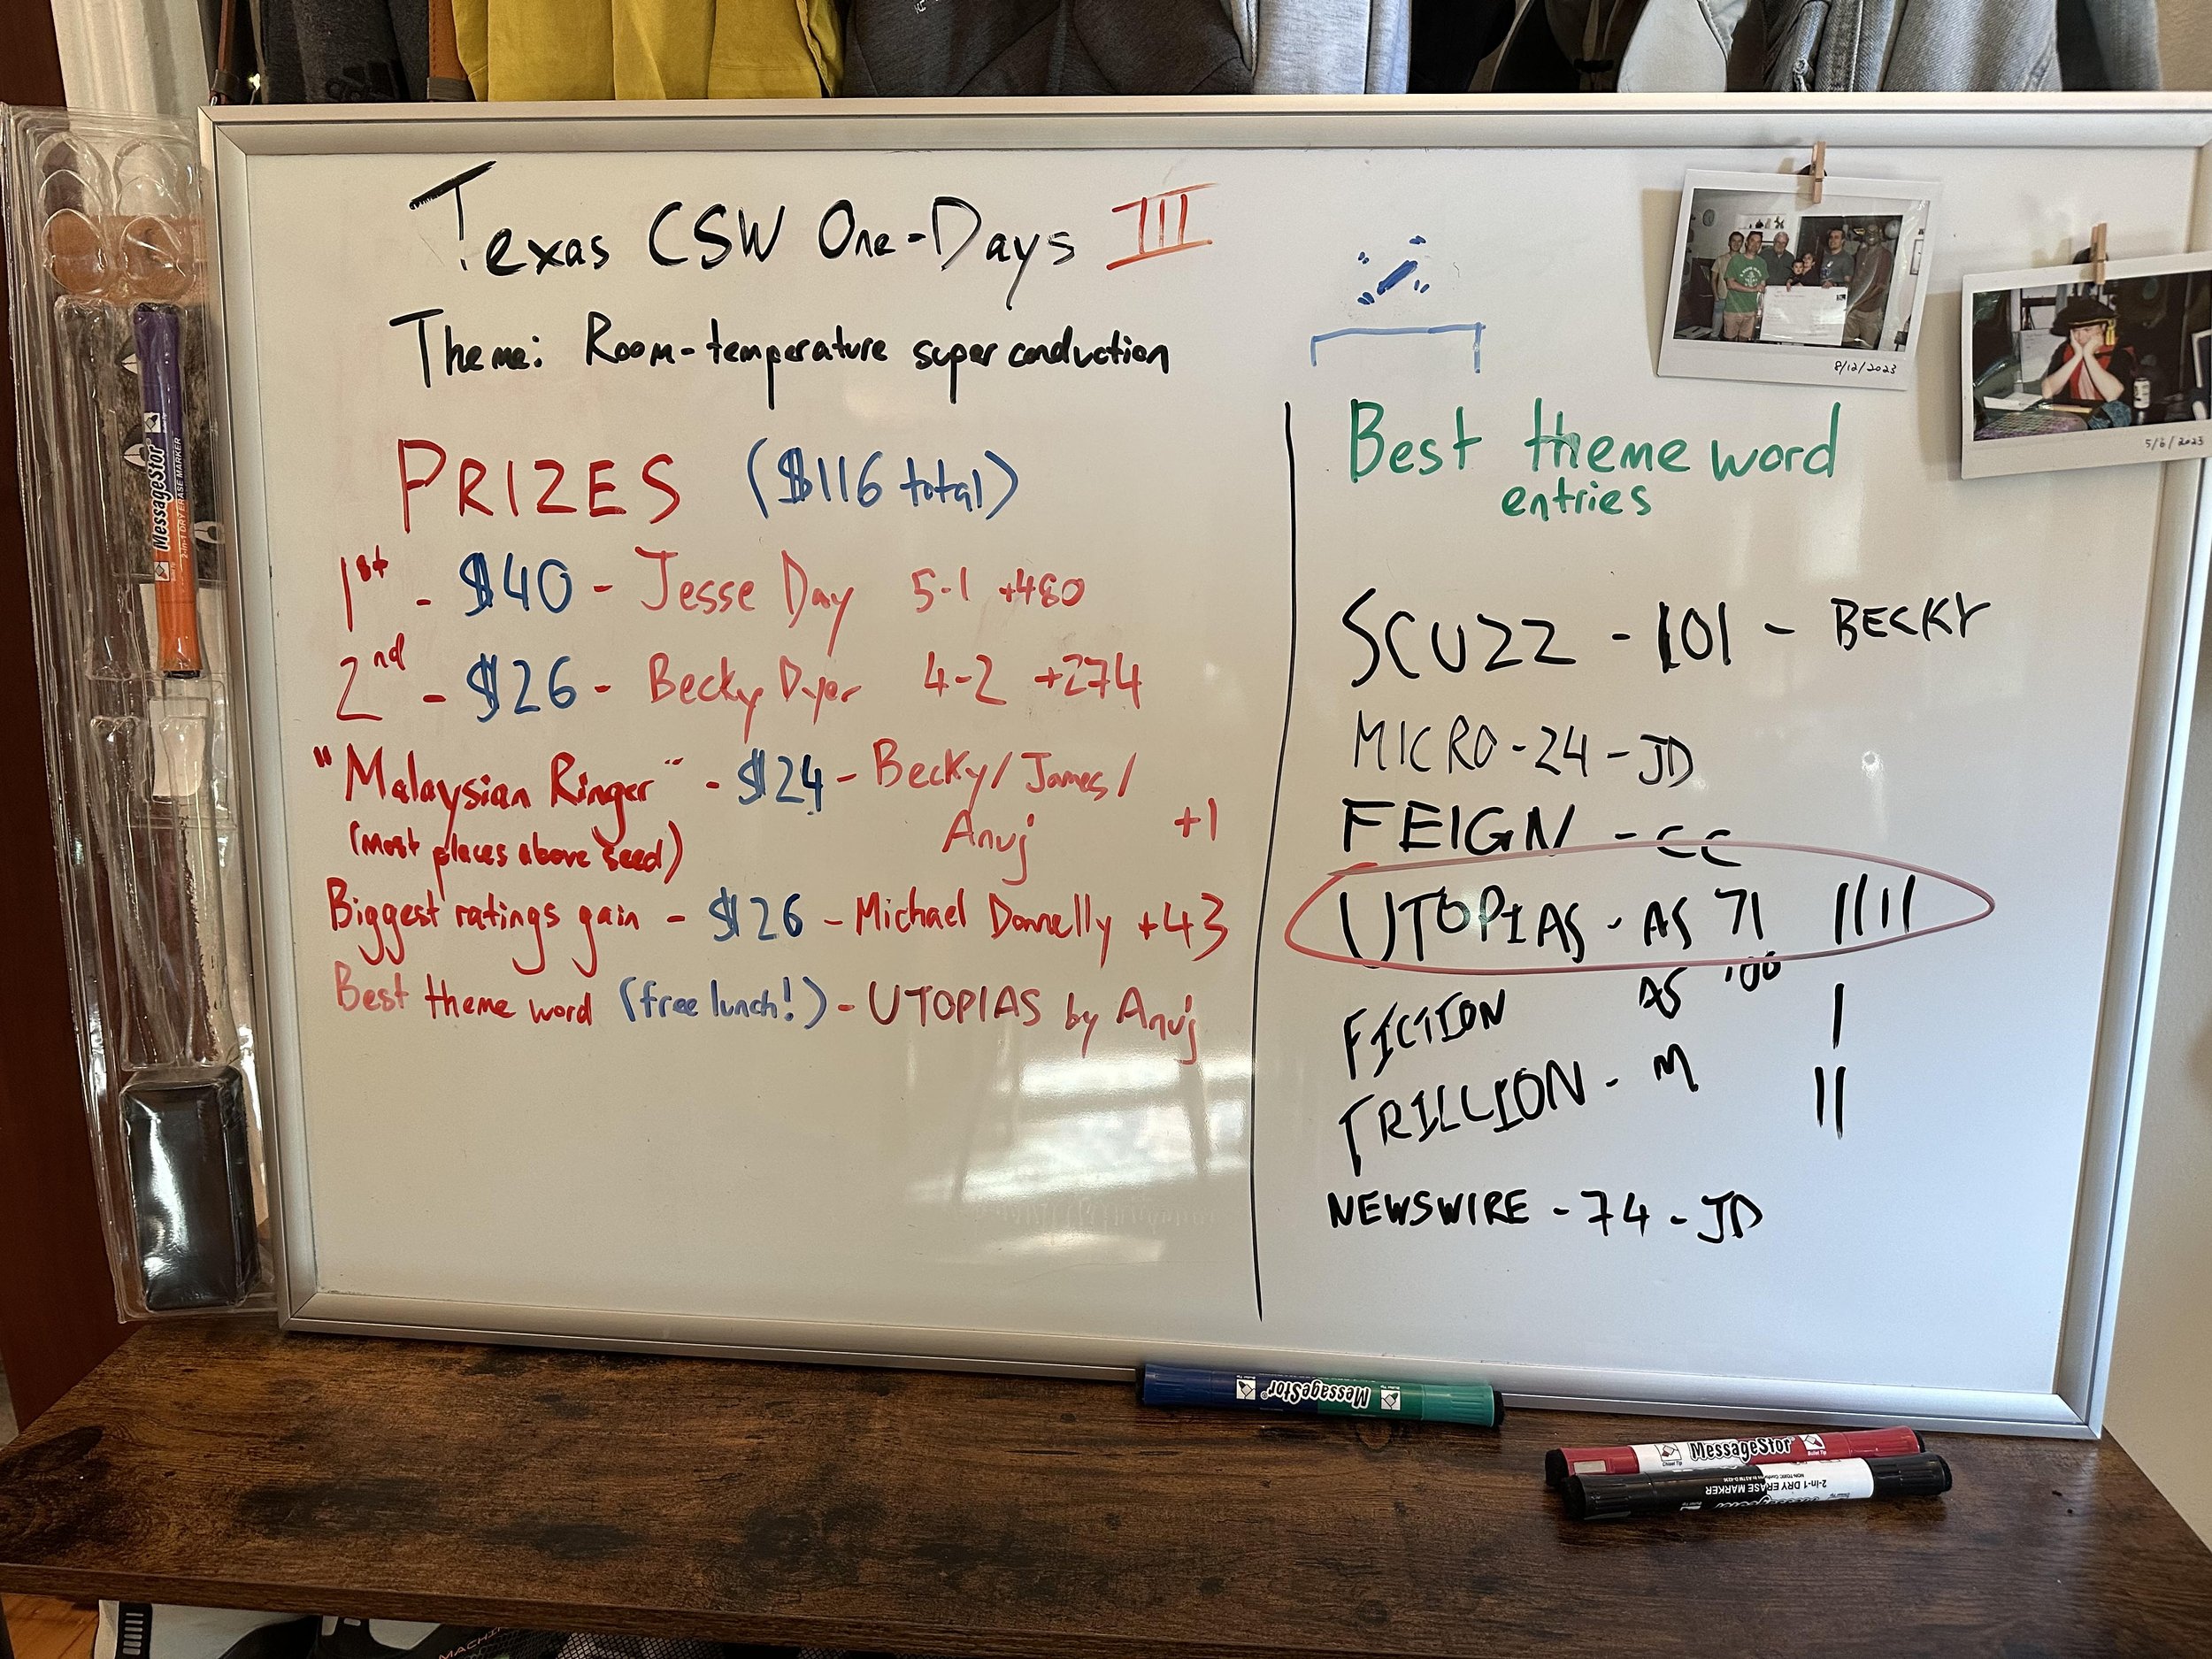 Texas CSW One-Days III
Theme: Room-temperature superconduction
PRIZES ($116 total)
1st - $40 - Jesse Day 5-1 +480
2nd - $26 - Becky Dyer 4-2 +274
"Malaysian Ringer" - $24 - Becky/James/
Anuj +1
(most places above seed)
Biggest ratings gain - $26 - Michael Donnelly +43
Best theme word (free lunch!) - UTOPIAS by Anuj
Best theme word
entries
SCUZZ - 101 - BECKY
MICRO - 24 - JD
FEIGN - CC
UTOPIAS - AS 71 ||||
FICTION AS 100 |
TRILLION - M ||
NEWSWIRE - 74 - JD
8/12/2023
5/6/2023
MessageStor
2-in-1 DRY ERASE MARKER
MessageStor
MessageStor
Chisel Tip
Bullet Tip
2-in-1 DRY ERASE MARKER